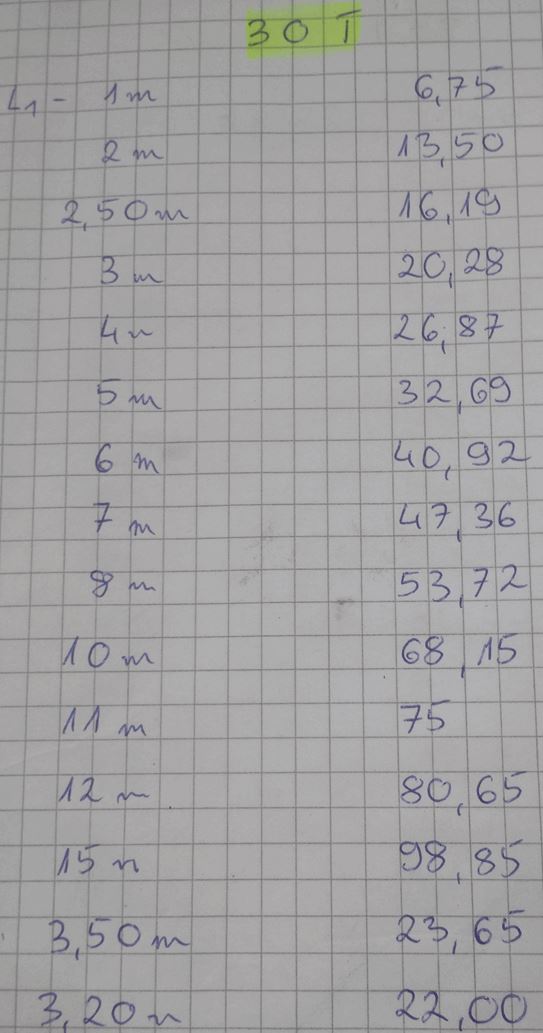 30 T
L1 - 1 m 6,75
2 m 13,50
2,50 m 16,19
3 m 20,28
4 m 26,87
5 m 32,69
6 m 40,92
7 m 47,36
8 m 53,72
10 m 68,15
11 m 75
12 m 80,65
15 m 98,85
3,50 m 23,65
3,20 m 22,00